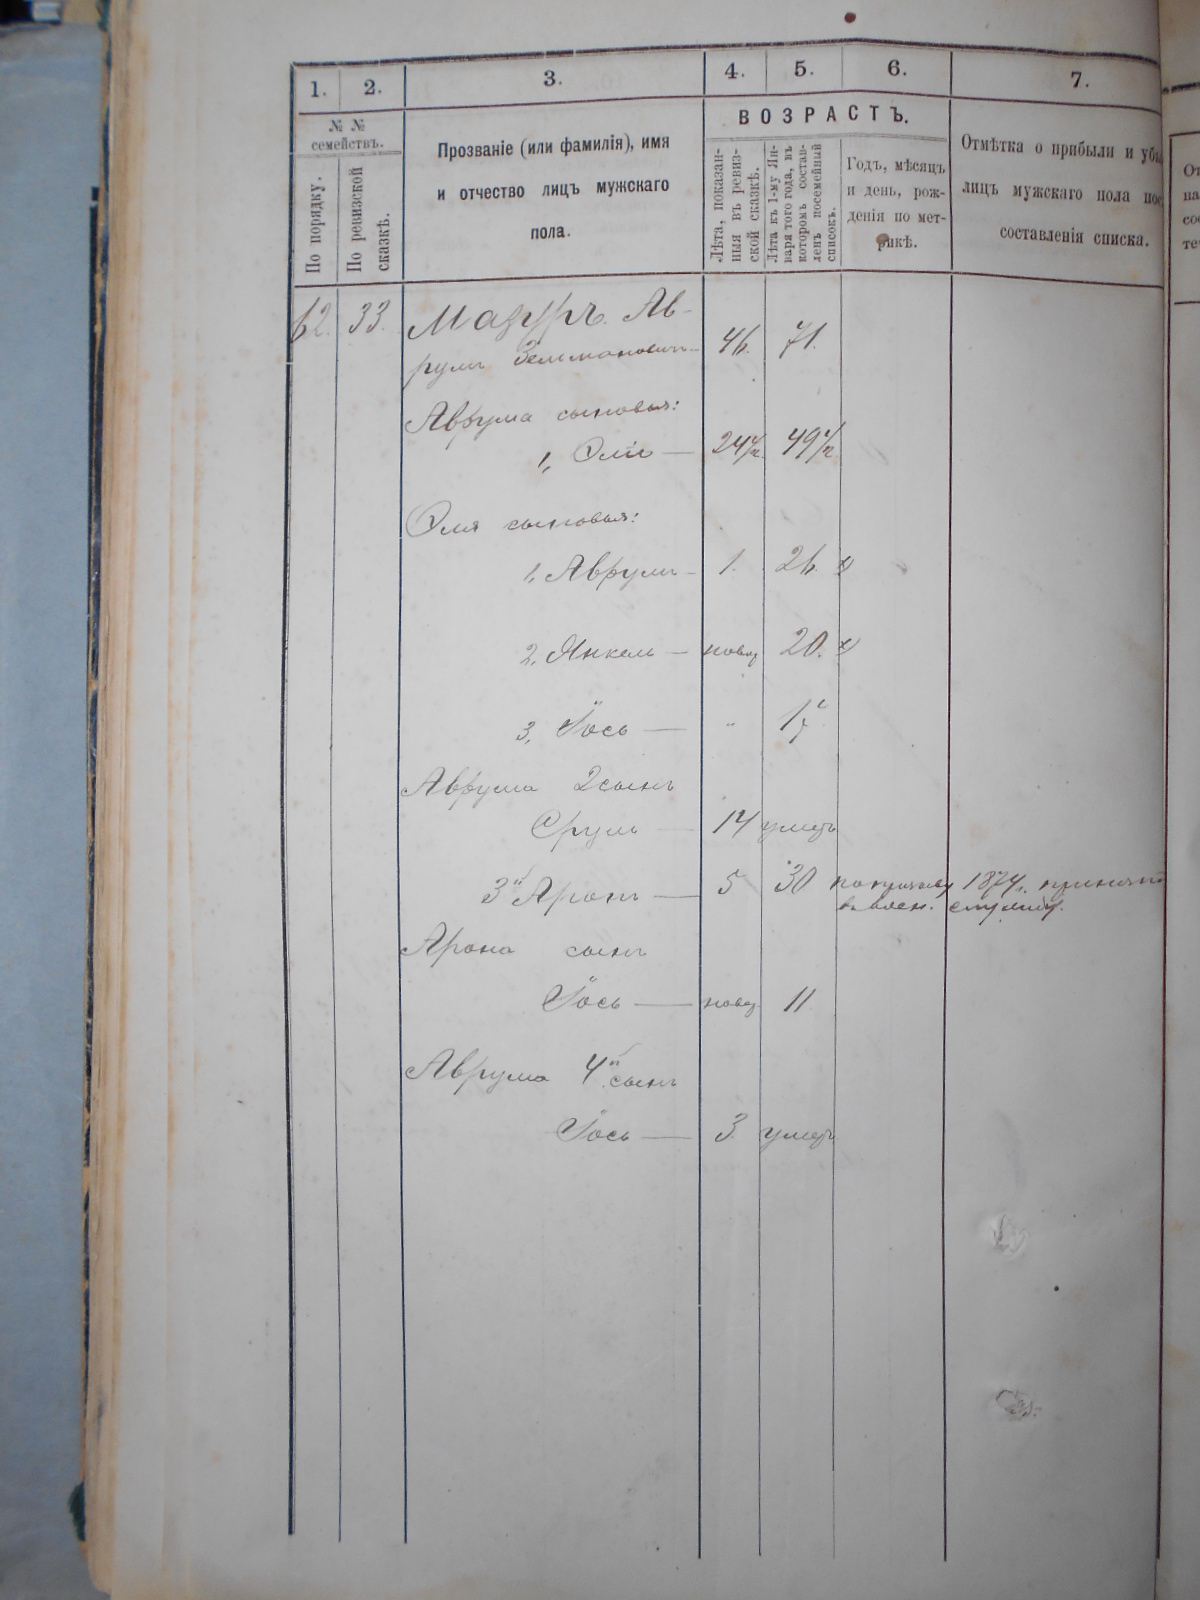 1. 2. 3. 4. 5. 6. 7.
№ №
семействъ.
По порядку.
По ревизской
сказкѣ.
Прозваніе (или фамилія), имя
и отчество лицъ мужскаго
пола.
ВОЗРАСТЪ.
Лѣта, показан-
ныя въ ревиз-
ской сказкѣ.
Лѣта къ 1-му Ян-
варя того года, въ
которомъ состав-
ленъ посемейный
списокъ.
Годъ, мѣсяцъ
и день, рож-
денія по мет-
рикѣ.
Отмѣтка о прибыли и убы
лицъ мужскаго пола пос
составленія списка.
62. 33. Мазуръ Ав-
румъ Зельмановичъ 46. 71.
Аврума сыновья:
1, Эліо — 24 1/2 49 1/2
Эля сыновья:
1, Аврумъ - 1. 26.
2, Янкель — новор 20.
3, Іось — " 17
Аврума 2 сынъ
Сруль — 14 умеръ
3й Аронъ — 5 30 1874г. принятъ
в воен. службу.
Арона сынъ
Іось — новор 11
Аврума 4й сынъ
Іось — 3. умеръ